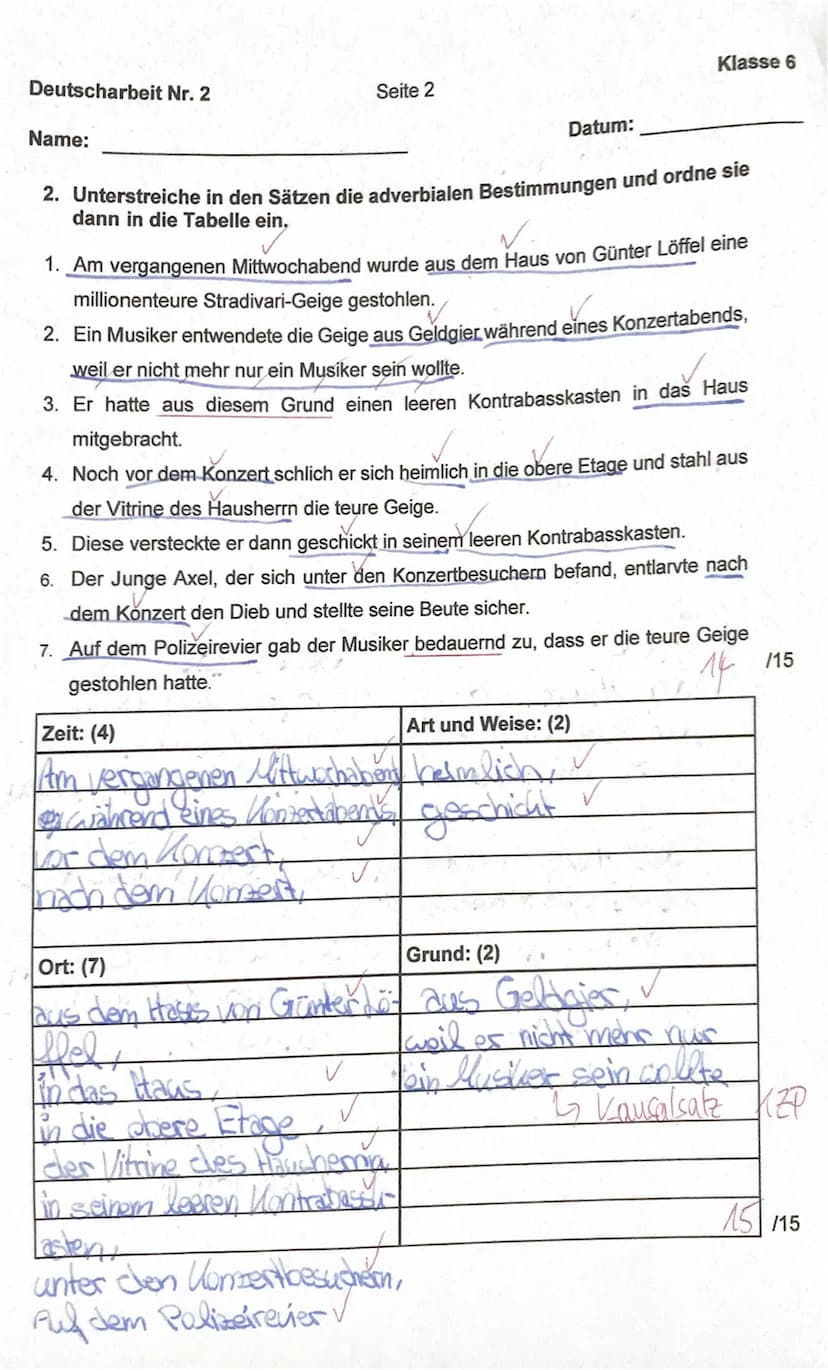 Klasse 6
Deutscharbeit Nr. 2 Seite 2
Name: Datum:
2. Unterstreiche in den Sätzen die adverbialen Bestimmungen und ordne sie
dann in die Tabelle ein.
1. Am vergangenen Mittwochabend wurde aus dem Haus von Günter Löffel eine
millionenteure Stradivari-Geige gestohlen.
2. Ein Musiker entwendete die Geige aus Geldgier während eines Konzertabends,
weil er nicht mehr nur ein Musiker sein wollte.
3. Er hatte aus diesem Grund einen leeren Kontrabasskasten in das Haus
mitgebracht.
4. Noch vor dem Konzert schlich er sich heimlich in die obere Etage und stahl aus
der Vitrine des Hausherrn die teure Geige.
5. Diese versteckte er dann geschickt in seinem leeren Kontrabasskasten.
6. Der Junge Axel, der sich unter den Konzertbesuchern befand, entlarvte nach
dem Konzert den Dieb und stellte seine Beute sicher.
7. Auf dem Polizeirevier gab der Musiker bedauernd zu, dass er die teure Geige
gestohlen hatte.
14 /15
Zeit: (4) Art und Weise: (2)
Am vergangenen Mittwochabend heimlich,
während eines Konzertabends, geschickt
vor dem Konzert,
nach dem Konzert,
Ort: (7) Grund: (2)
aus dem Haus von Günter Lö- aus Geldgier,
ffel, weil er nicht mehr nur
in das Haus, ein Musiker sein wollte
in die obere Etage, ↳ Kausalsatz 1ZP
der Vitrine des Hausherrn
in seinem leeren Kontrabassk-
asten, 15 /15
unter den Konzertbesuchern,
Auf dem Polizeirevier